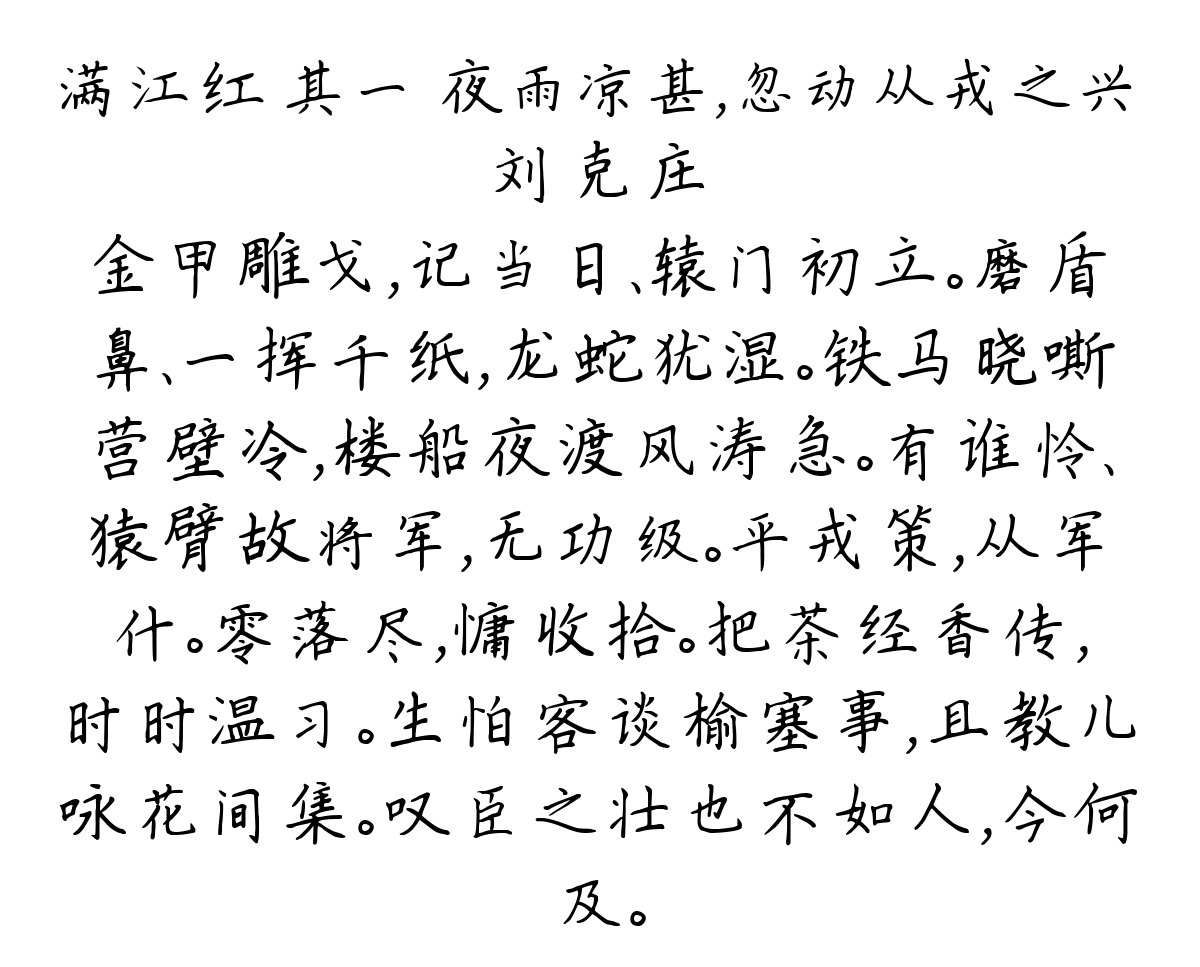 满江红 其一 夜雨凉甚,忽动从戎之兴
刘克庄
金甲雕戈,记当日、辕门初立。磨盾
鼻、一挥千纸,龙蛇犹湿。铁马晓嘶
营壁冷,楼船夜渡风涛急。有谁怜、
猿臂故将军,无功级。平戎策,从军
什。零落尽,慵收拾。把茶经香传,
时时温习。生怕客谈榆塞事,且教儿
咏花间集。叹臣之壮也不如人,今何
及。